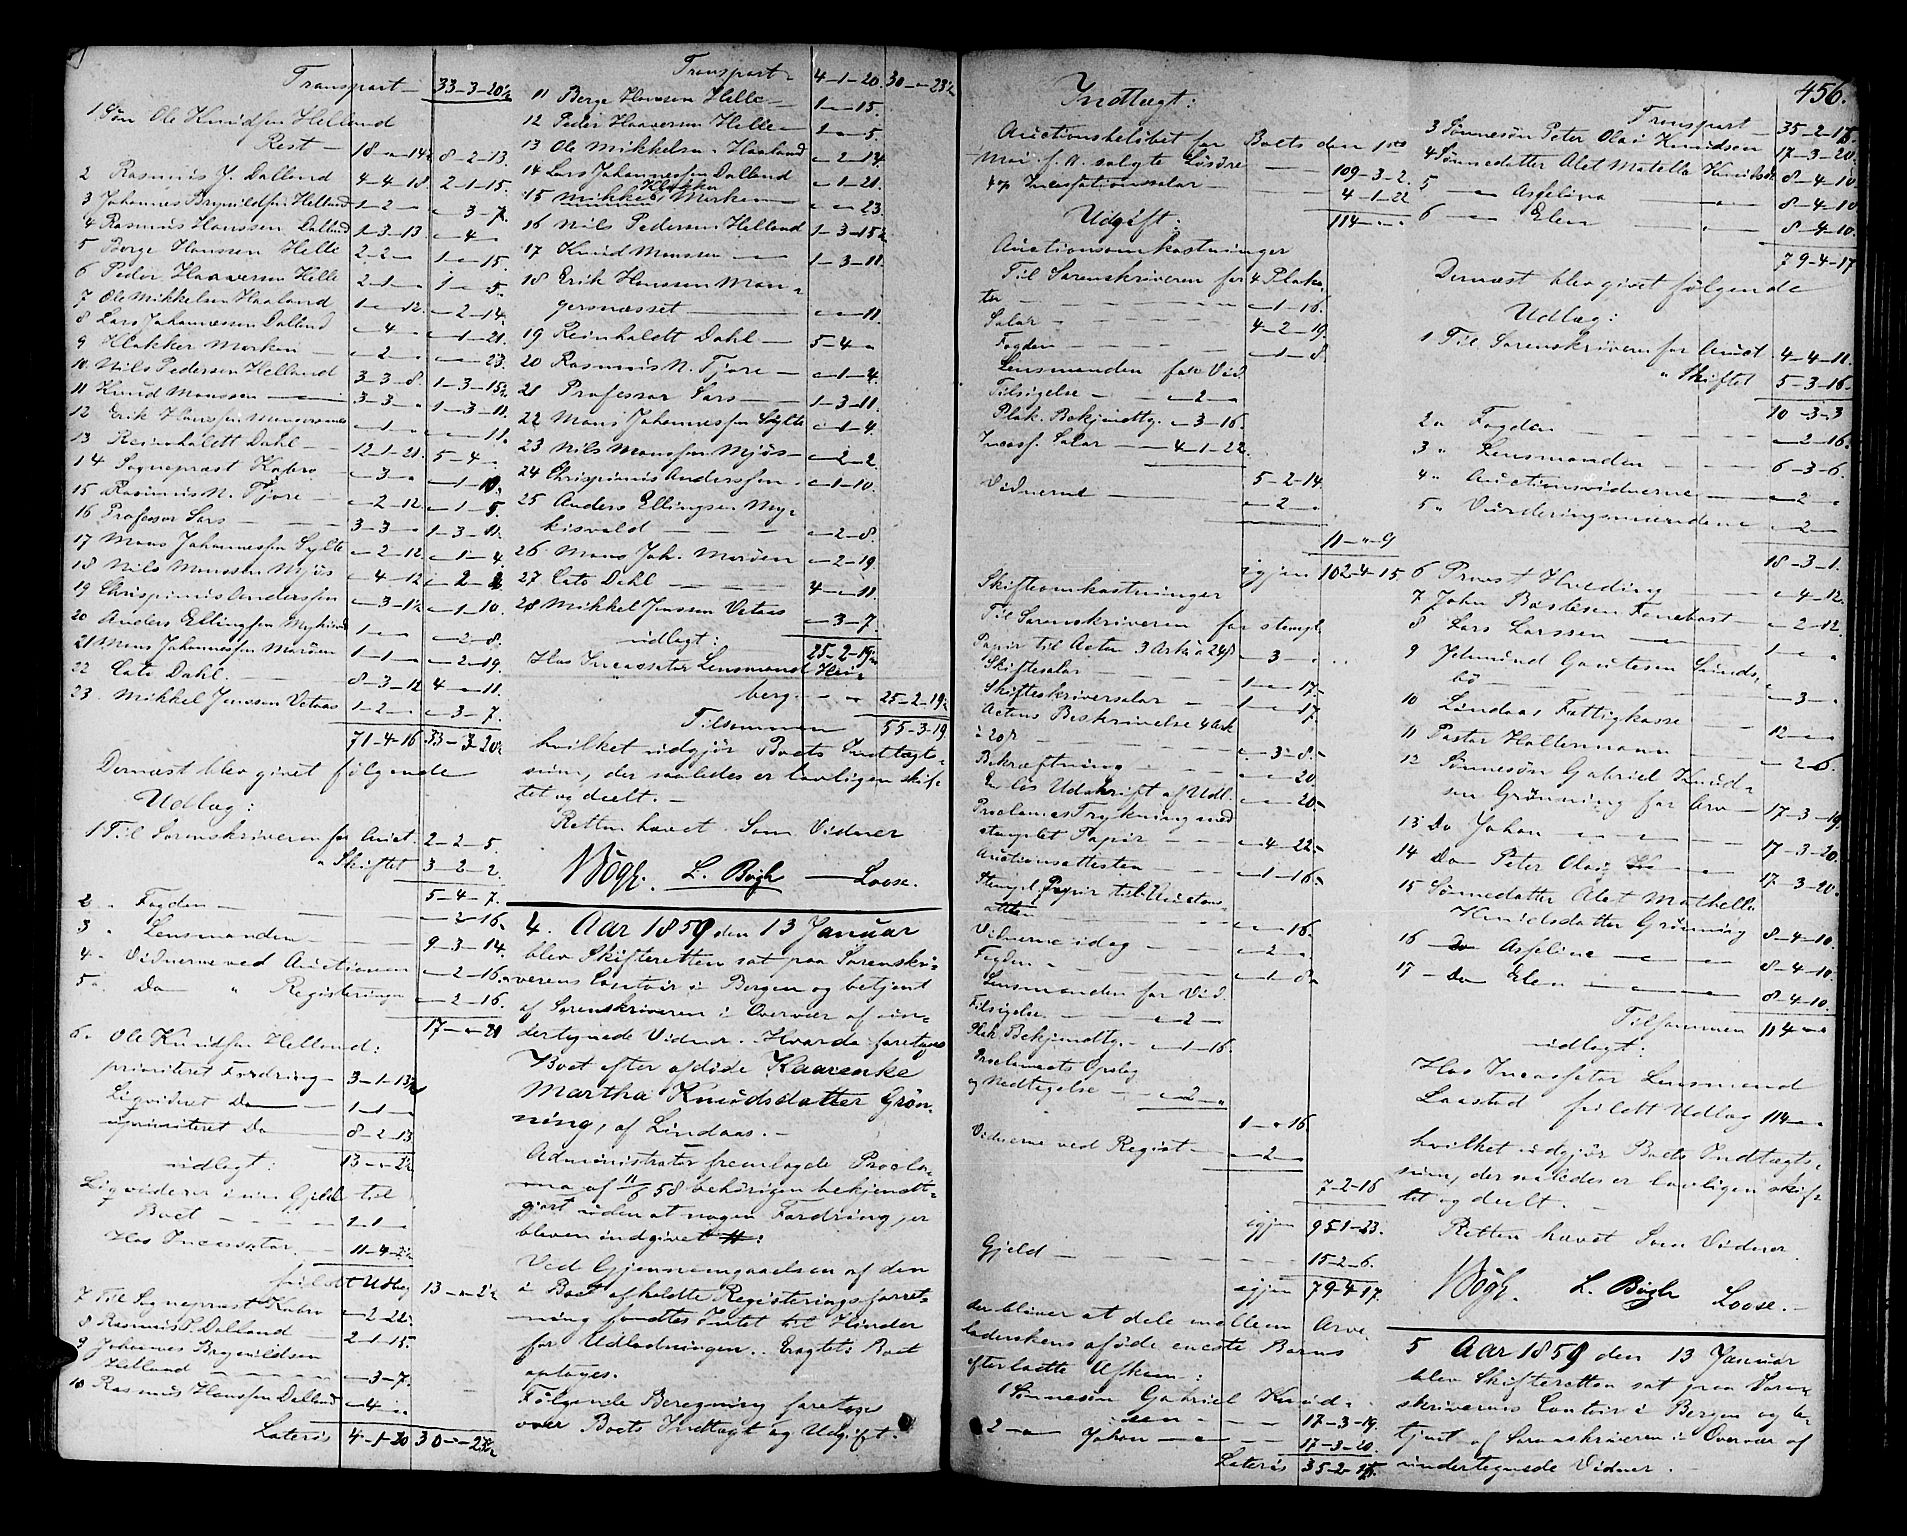 Transport 33-3-20½
1 Søn Ole Knudsen Helland
Rest 18-"-14½ 8-2-13.
2 Rasmus J. Dalland 4-4-18 2-1-15.
3 Johannes Brynildsen Helland 1-2-" "-3-7.
4 Rasmus Hanssen Dalland 1-3-13 "-4-"
5 Berge Hanssen Helle 2-2-" 1-"-15.
6 Peder Haaversen Helle 2-1-" 1-"-5.
7 Ole Mikkelsen Haaland 1-"-12. "-2-14.
8 Lars Johannessen Dalland "-4-" "-1-21.
9 Klokker Morken "-2-" "-"-23.
10 Nils Pedersen Helland 3-3-8. 1-3-15½
11 Knud Monssen 3-3-" 1-3-11.
12 Erik Hanssen "-1-" "-"-11.
13 Reinholdt Dahl 12-1-21. 5-4-"
14 Sognepræst "-3-" "-1-10.
15 Rasmus N. Fjore "-2-12 "-1-5.
16 Professor Sars 3-3-" 1-3-11.
17 Mons Johannessen Sylte "-2-12 "-1-4.
18 Nils Monssen Mjös "-4-12 "-2-2
19 Chrispinus Anderssen "-3-12 "-1-10.
20 Anders Ellingsen 1-"-" "-2-8.
21 Mons Johannessen 1-1-" "-2-19.
22 Cato Dahl. 8-3-12 4-"-11.
23. Mikkel Jenssen Vetaas 1-2-" "-3-7.
71-4-16. 33-3-20½
Dernæst blev givet følgende
Udlæg:
1 Til Sorenskriveren for Auct. 2-2-5.
" Skiftet 3-2-2.
5-4-7.
2 " Fogden "-2-16.
3 " Lensmanden 9-3-14.
4 " Vidnerne ved Auctionen "-2-16.
5 " Do " Registeringen "-2-16.
17-"-21
6. Ole Knudsen Helland:
prioriteret Fordring 3-1-13½
Liqvideret Do 1-1-"
uprioriteret Do 8-2-13.
udlagt: 13-"-2½
Liqviderer i sin Gjeld til
Boet 1-1-"
Hos Incassator 11-4-2½
fuldt Udlæg 13-"-2½
7 Til Sognepræst "-2-22.
8 Rasmus J. Dalland 2-1-15.
9 Johannes Brynildsen
Helland "-3-7.
10 Rasmus Hanssen Dalland "-4-"
Lateris 4-1-20 30-"-23½
Transport 4-1-20. 30-"-23½
11 Berge Hanssen Helle 1-"-15.
12 Peder Haaversen Helle 1-"-5.
13 Ole Mikkelsen Haaland "-2-14.
14 Lars Johannessen Dalland "-1-21.
15 Mikkel Klokker Morken "-"-23.
16 Nils Pedersen Helland 1-3-15½
17 Knud Monssen 1-3-11.
18 Erik Hanssen Mon-
gersnæsset "-"-11.
19 Reinholdt Dahl 5-4-"
20 Rasmus N. Fjore "-1-4.
21 Professor Sars 1-3-11.
22 Mons Johannessen Sylte "-1-4.
23 Nils Monssen Mjös "-2-2.
24 Chrispinus Anderssen "-1-10.
25 Anders Ellingsen My-
kisvald "-2-8.
26 Mons Joh. "-2-19.
27 Cato Dahl 4-"-11.
28 Mikkel Jenssen Vetaas "-3-7.
udlagt: 25-2-19½
Hos Incassator Lensmand
berg 25-2-19½
Tilsammen 55-3-19.
hvilket udgjør Boets Indtægts-
sum, der saaledes er lovligen skif-
tet og deelt.
Retten hævet. Som Vidner
L. Bøgh Loose.
4. Aar 1859 den 13 Januar
blev Skifteretten sat paa Sorenskri-
verens Contoir i Bergen og betjent
af Sorenskriveren i Overvær af un-
dertegnede Vidner. Hvorda foretoges
Boet efter afdøde Kaarenke
Martha Knudsdatter Grøn-
ning, af Lindaas.
Administrator fremlagde Procla-
ma af 11/6 58 behørigen bekjendt-
gjort uden at nogen Fordring er
bleven indgivet:
Ved Gjennemgaaelsen af den
i Boet afholdte Registeringsforret-
ning fandtes Intet til Hinder
for Udlodningen. Ergtets Boet
optages.
Følgende Beregning foretoges
over Boets Indtægt og Udgift.
456.
Indtægt:
Auctionsbeløbet for Boets den 1ste
Mai f. A. solgte Løsøre 109-3-2.
4 p Incassationssalar 4-1-22
114-"-"
Udgift:
Auctionsomkostninger
Til Sorenskriveren for 4 Placa-
ter "-1-16.
Salar 4-2-19.
Fogden "-1-8.
Lensmanden for Vid.
Tilsigelse "-2-"
Plak. Bekjendtg. "-3-16.
Incass. Salar 4-1-22.
5-2-14.
Vidnerne "-2-"
11-"-9
igjen 102-4-15
Skifteomkostninger
Til Sorenskriveren for stempl.
Papir til Acten 3 Ark à 24ß "-3-"
Skiftesalar 1-"-17.
Skifteskriversalar 1-"-17.
Actens Beskrivelse 4 Ark
à 20ß "-3-8.
Bekræftning "-"-20
En løs Udskrift af Udl. "-"-20.
Proclamas Trykning med
stemplet Papir "-4-22.
Auctionsattesten "-1-16.
Stempl. Papir til Auctions-
atten "-"-16.
Vidnerne idag "-2-"
Fogden "-1-8
Lensmanden for Vid.
Tilsigelse "-2-"
Plak. Bekjendtg. "-1-16.
Proclamaets Opslag
og Nedtagelse "-2-"
1-"-16
Vidnerne ved Regist. "-2-"
7-2-16
igjen 95-1-23.
Gjeld 15-2-6.
igjen 79-4-17.
der bliver at dele mellem Arve-
laderskens afdøde eneste Barns
efterladte Afkom:
1 Sønnesøn Gabriel Knud-
sen 17-3-19.
2 " Johan 17-3-20.
Lateris 35-2-15.
Transport 35-2-15.
3 Sønnesøn Peter Olai Knudsen 17-3-20.
4 Sønnedatter Alet Matella Knudsd. 8-4-10.
5 " Asseline 8-4-10
6 " Elen 8-4-10.
79-4-17
Dernæst blev givet følgende
Udlæg:
1 Til Sorenskriveren for Auct. 4-4-11.
" Skiftet 5-3-16.
10-3-3
2 " Fogden "-2-16.
3 " Lensmanden 6-3-6.
4 " Auctionsvidnerne "-2-"
5 " Vurderingsmændene "-2-"
18-3-1.
6 Provst Hvoding "-4-12.
7 John Bastesen Fonebost "-2-12.
8 Lars Larssen 1-"-"
9 Jdmund Gautesen Sunds-
bø "-3-"
10 Lindaas Fattigkasse 12-"-"
11 Pastor Haltermann "-2-6.
12 Sønnesøn Gabriel Knud-
sen Grønning for Arv 17-3-19.
13 Do Johan 17-3-20.
14 Do Peter Olai 17-3-20.
15 Sønnedatter Alet Mathelle
Knudsdatter Grønning 8-4-10.
16 Do Asseline 8-4-10.
17 Do Elen 8-4-10.
Tilsammen 114-"-"
udlagt:
Hos Incassator Lensmand
Laastad fuldt Udlæg 114-"-"
hvilket udgjør Boets Indtægts-
sum, der saaledes er lovligen skif-
tet og deelt.
Retten hævet Som Vidner.
L. Bøgh Loose.
5 Aar 1859 den 13 Januar
blev Skifteretten sat paa Soren-
skriverens Contoir i Bergen og be-
tjent af Sorenskriveren i Overvær af
undertegnede Vidner.